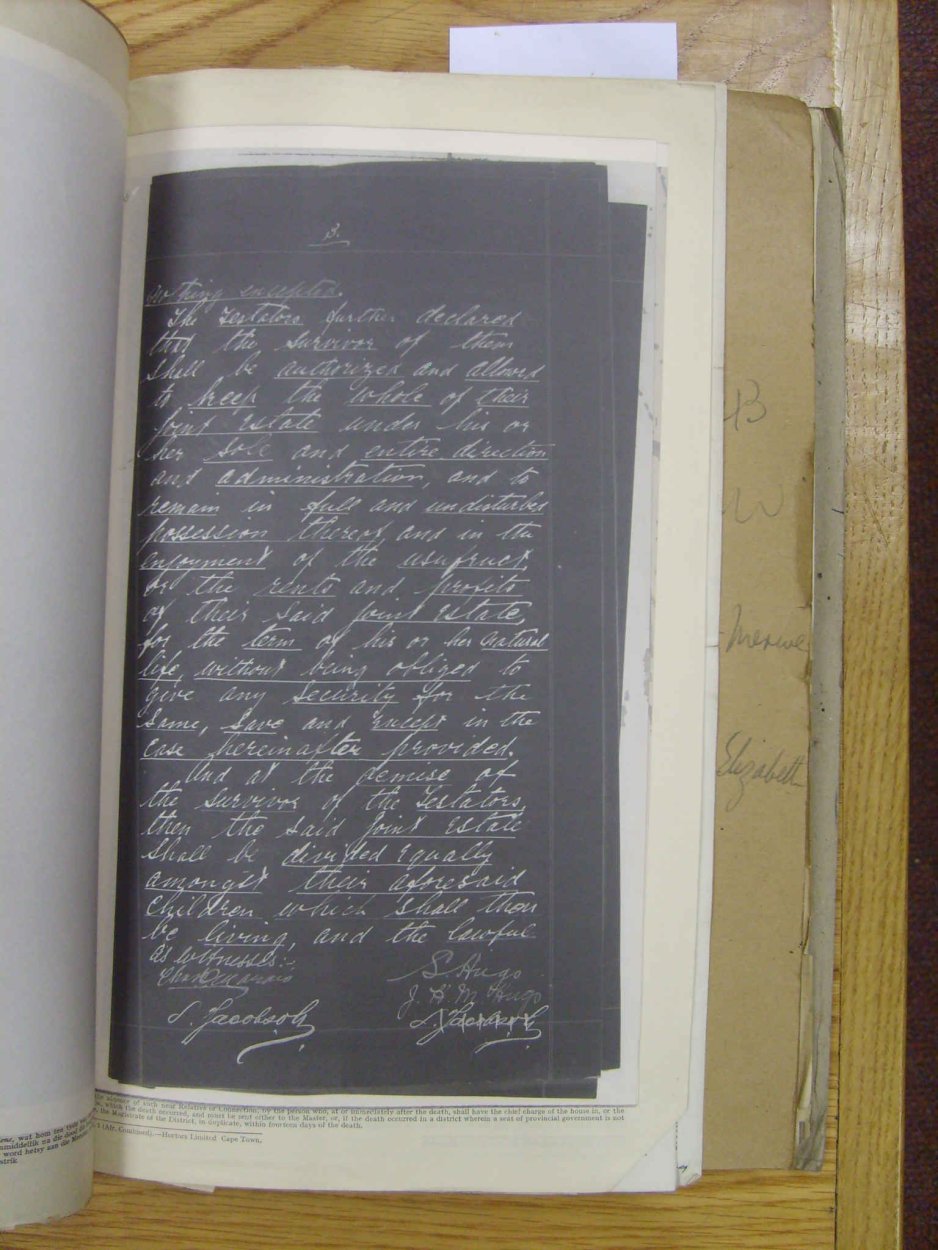 3.
nothing excepted.
The Testators further declared
that the survivor of them
shall be authorized and allowed
to keep the whole of their
joint Estate under his or
her sole and entire direction
and administration, and to
remain in full and undisturbed
possession thereof and in the
enjoyment of the usufruct,
or the rents and profits
of their said joint Estate,
for the term of his or her natural
life, without being obliged to
give any security for the
same, save and except in the
case hereinafter provided.
And at the demise of
the survivor of the Testators,
then the said joint Estate
shall be divided equally
amongst their aforesaid
children which shall then
be living, and the lawful
as witnesses:-
S Hugo
J. H. M. Hugo
S. Jacobsohn
B
W
Merwe
Elizabeth
absence of such near Relative or Connection, by the person who, at or immediately after the death, shall have the chief charge of the house in, or the
which the death occurred, and must be sent either to the Master, or, if the death occurred in a district wherein a seat of provincial government is not
the Magistrate of the District, in duplicate, within fourteen days of the death.
(Alt. Continued).—Hortors Limited Cape Town.